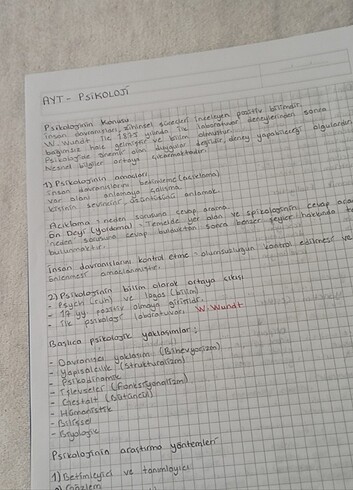 AYT - PSİKOLOJİ
Psikolojinin Konusu
insan davranışları, zihinsel süreçleri inceleyen pozitif bilimdir.
W. Wundt ilk 1879 yılında ilk laboratuvar deneylerinden sonra
bağımsız hale gelmiştir ve bilim olmuştur.
Psikolojide önemli olan duygular değildir, deney yapabileceği olgulardır.
Nesnel bilgiler ortaya çıkarmaktadır.
1) Psikolojinin amaçları
insan davranışlarını betimleme
var olanı anlamaya çalışma
kişinin sevincini, üzüntüsünü anlamak
Açıklama: neden sorusuna cevap arama
Ön Deyi (yordama) - Temelde yer alan ve
neden sorusuna cevap bulduktan sonra benzer şeyler hakkında
bulunmaktır.
insan davranışlarını kontrol etme - olumsuzluğun kontrol edilmesi ve
önlenmesi amaçlanmıştır.
2) Psikolojinin bilim olarak ortaya çıkışı
- Psych (ruh) ve logos (bilim)
- 17. yy pozitif olmaya girişiler.
- ilk psikoloji laboratuvarı W. Wundt
Başlıca psikolojik yaklaşımlar;
- Davranışçı yaklaşım (Bihevyorizm)
- Yapısalcılık (Strüktüralizm)
- Psikodinamik
- İşlevseller (Fonksiyonalizm)
- Gestalt (Bütüncül)
- Hümanistik
- Bilişsel
- Biyolojik
Psikolojinin araştırma yöntemleri
1) Betimleyici ve tanımlayıcı
a) Gözlem